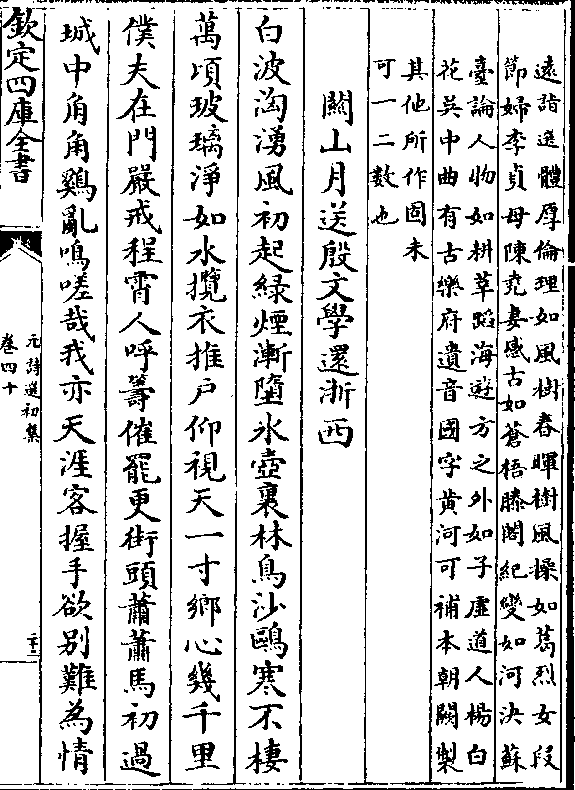 遠詣選體厚倫理如風樹春暉樹風操如葛烈女段
節婦李貞母陳堯妻感古如蒼梧滕閣紀變如河決蘇
臺論人物如耕莘蹈海遊方之外如子虛道人楊白
花吴中曲有古樂府遺音國字黄河可補本朝闕製
其他所作固未
可一二數也
關山月送殷文學還浙西
白波洶湧風初起緑煙漸墮氷壺裏林烏沙鷗寒不棲
萬頃玻璃淨如水攬衣推户仰視天一寸鄉心幾千里
僕夫在門嚴戒程霄人呼籌催罷更街頭蕭蕭馬初過
城中角角鷄亂鳴嗟哉我亦天涯客握手欲别難為情
欽定四庫全書
元詩選初集
卷四十
二十三